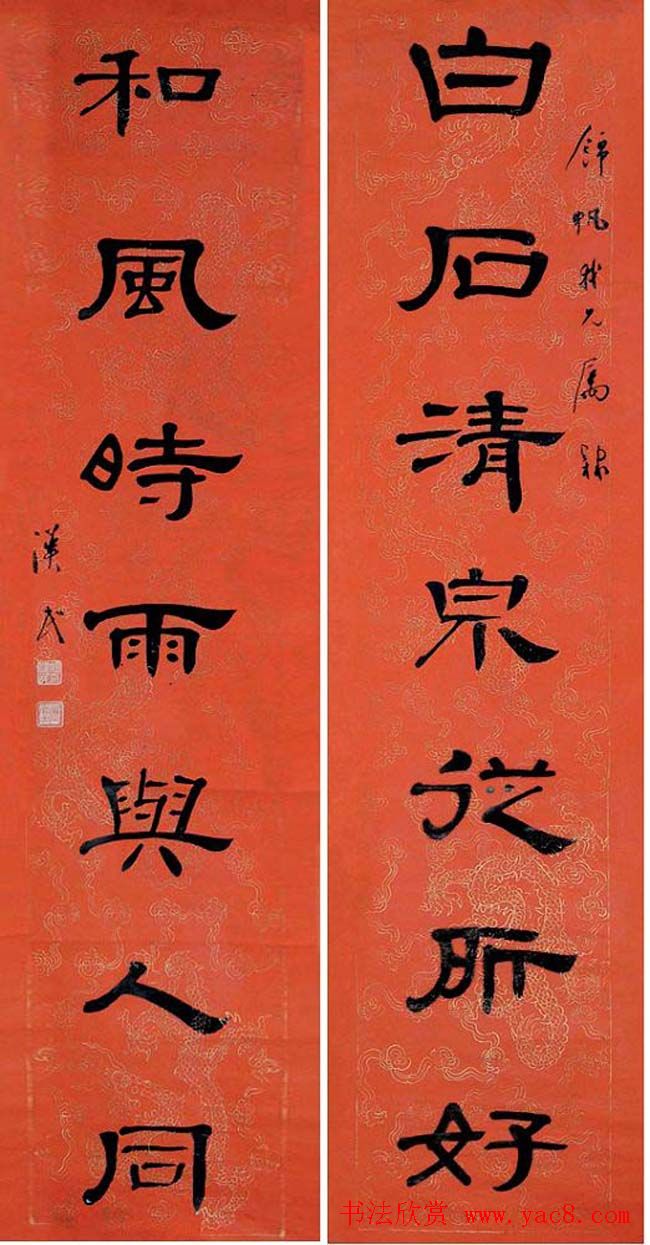 白石清泉從所好
錦帆我兄屬隸
和風時雨與人同
漢民
书法欣赏 www.yac8.com